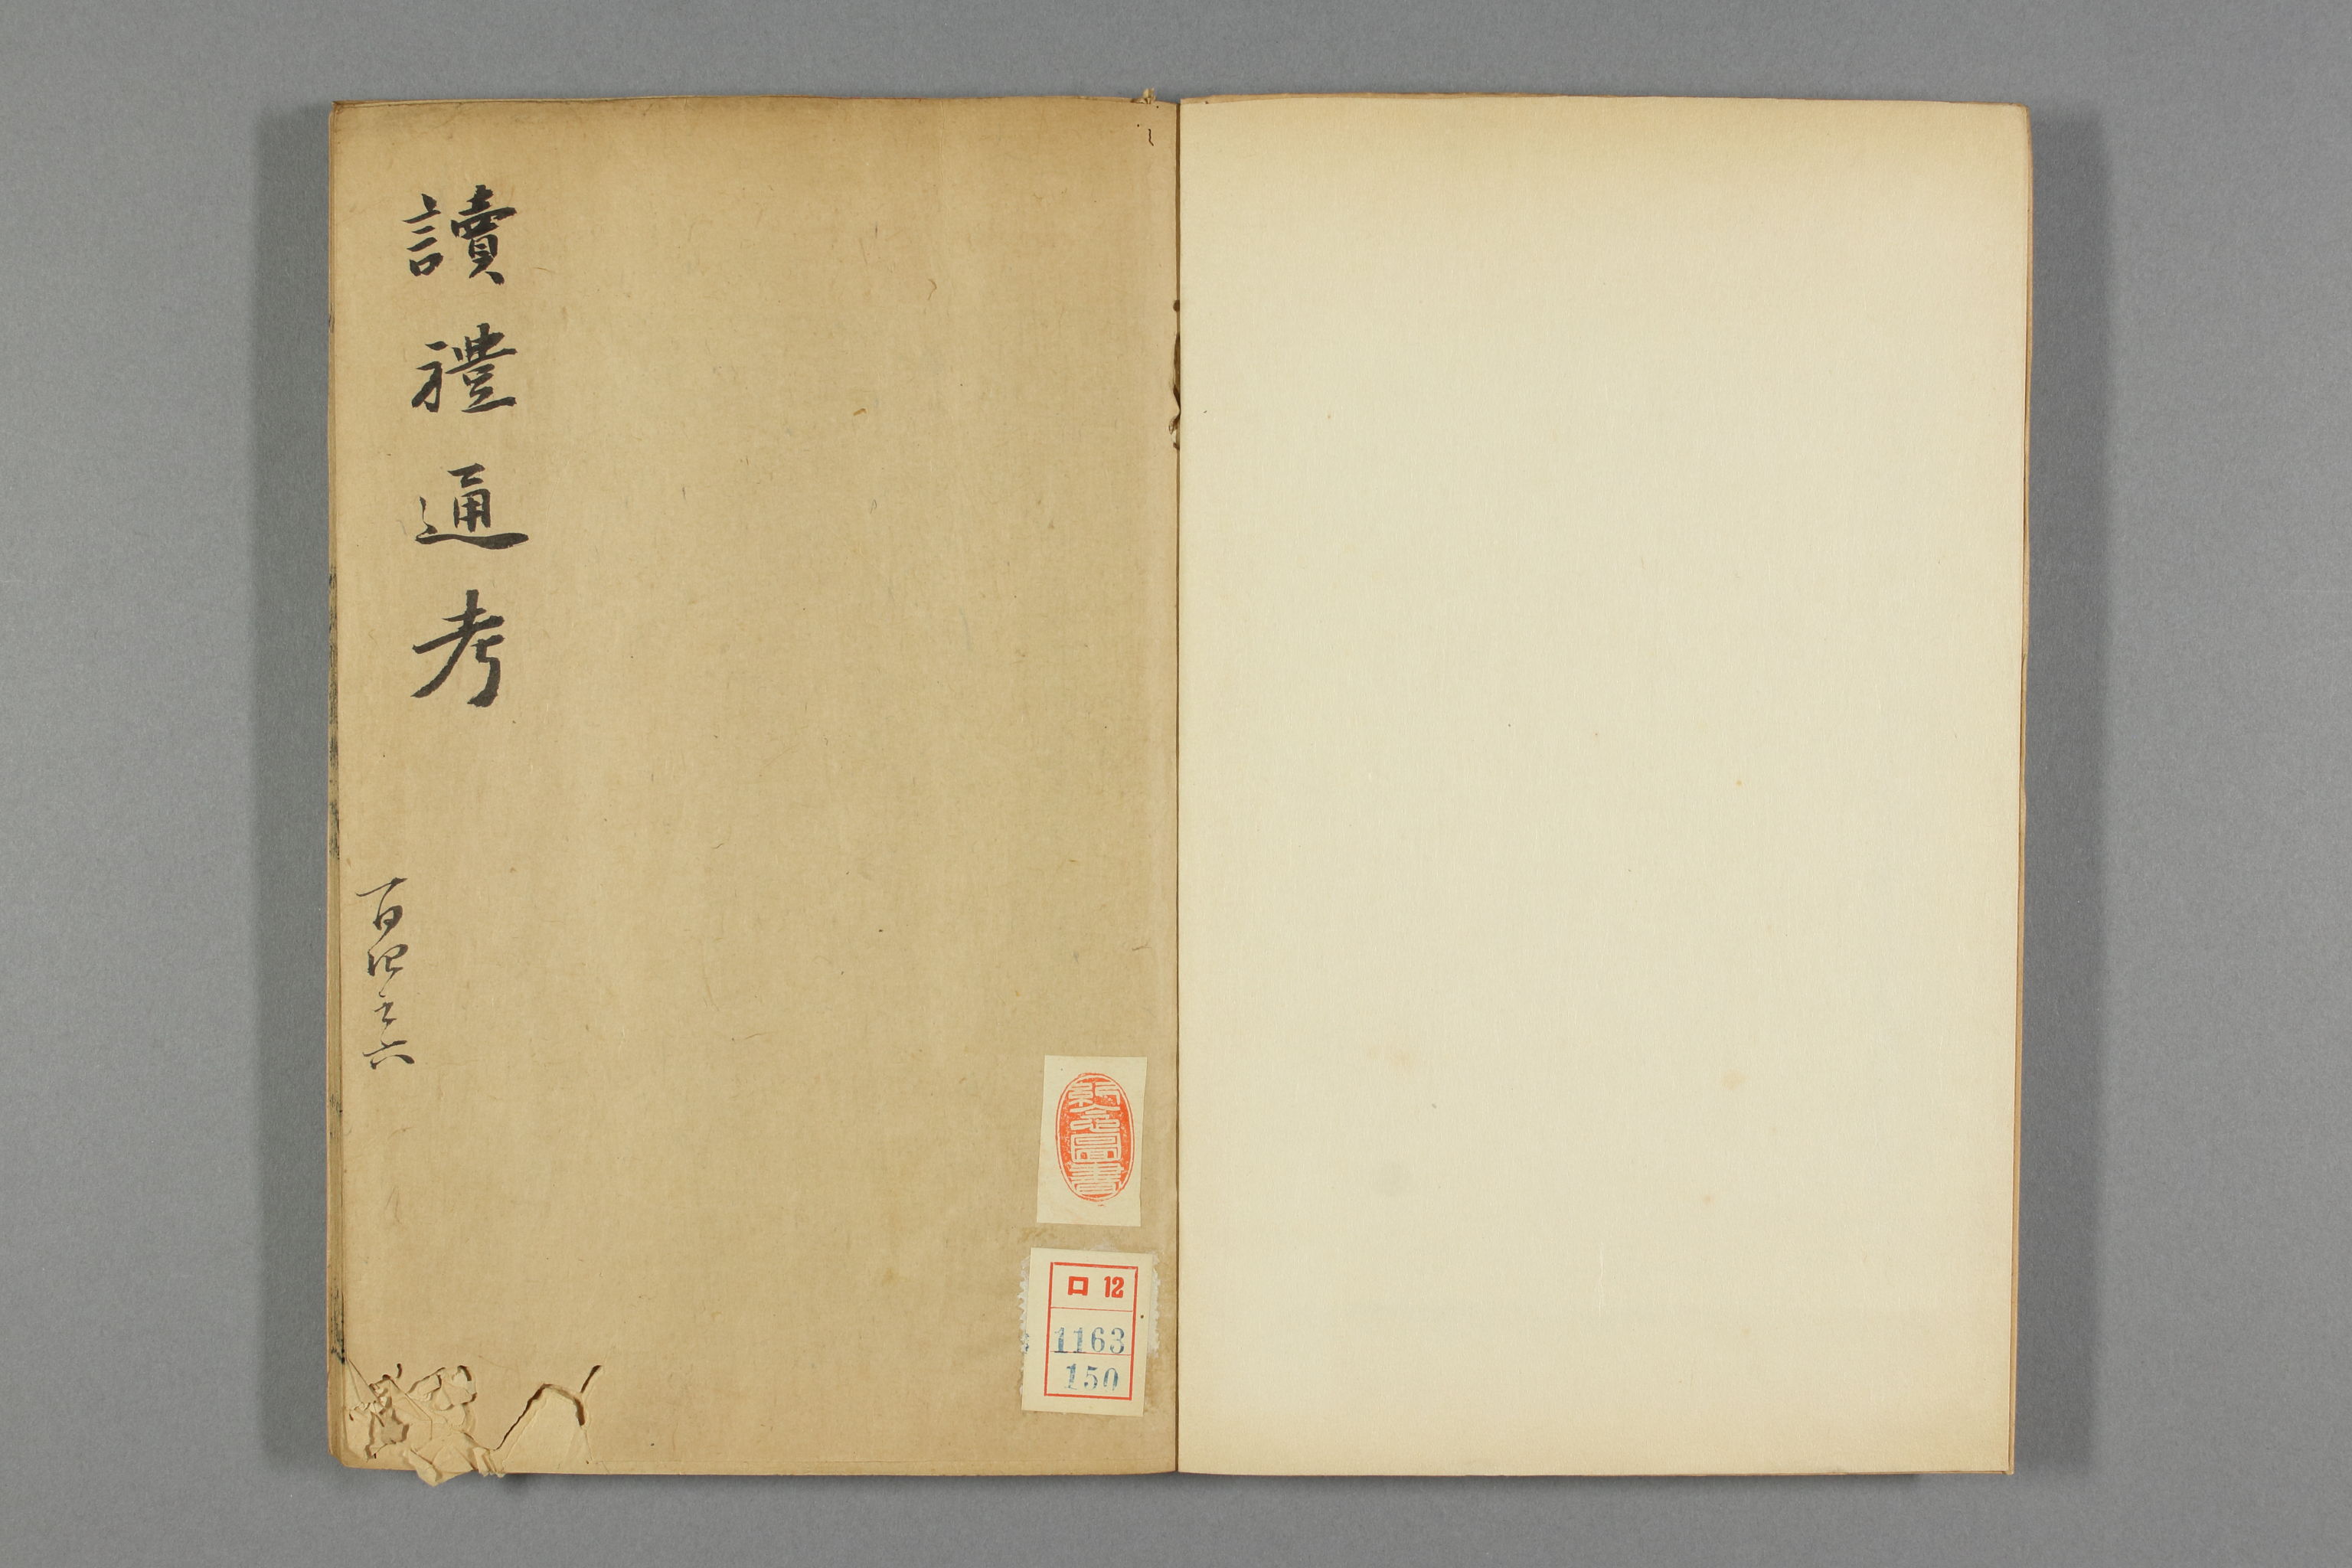 讀禮通考
百四至六
紀念圖書
ロ 12
1163
150